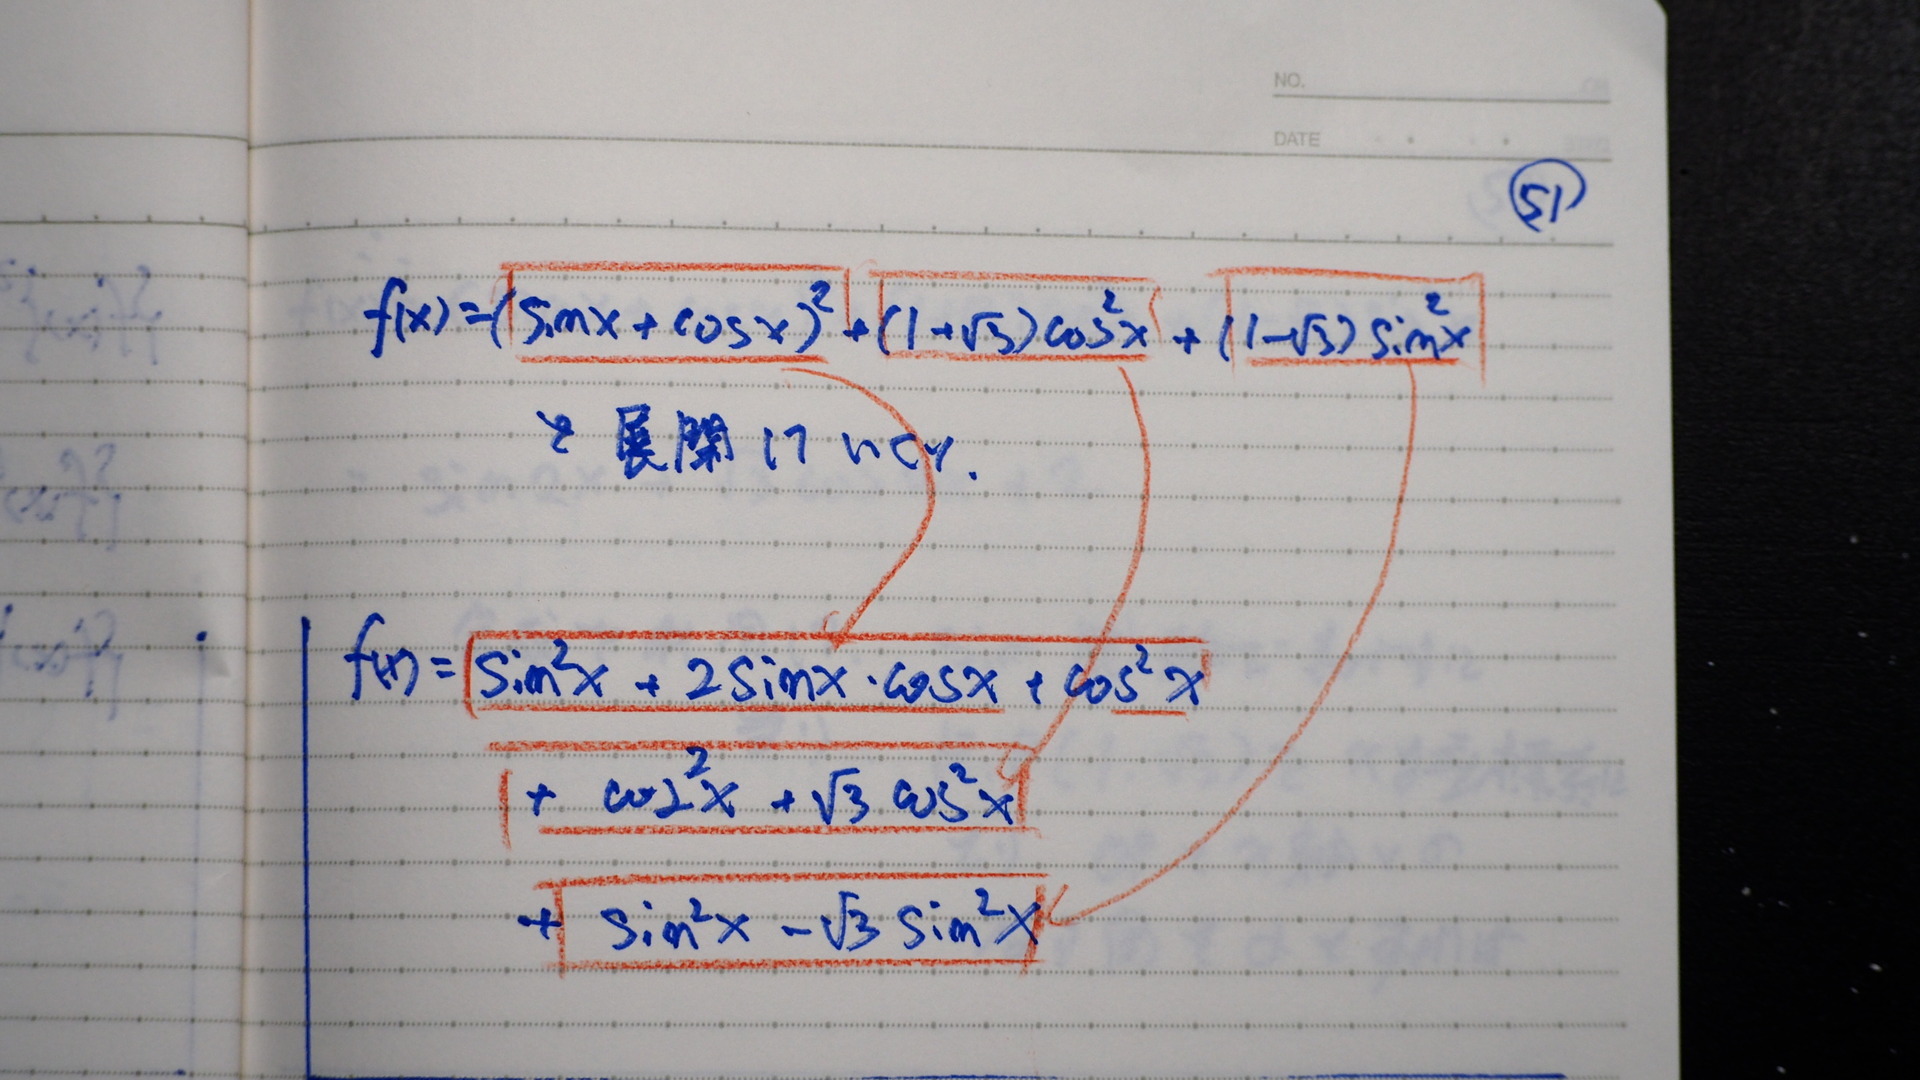 NO.
DATE
51
f(x)=(sinx+cosx)²+(1+√3)cos²x+(1-√3)sin²x
と展開
f(x)=sin²x+2sinx·cosx+cos²x
+cos²x+√3cos²x
+sin²x-√3sin²x